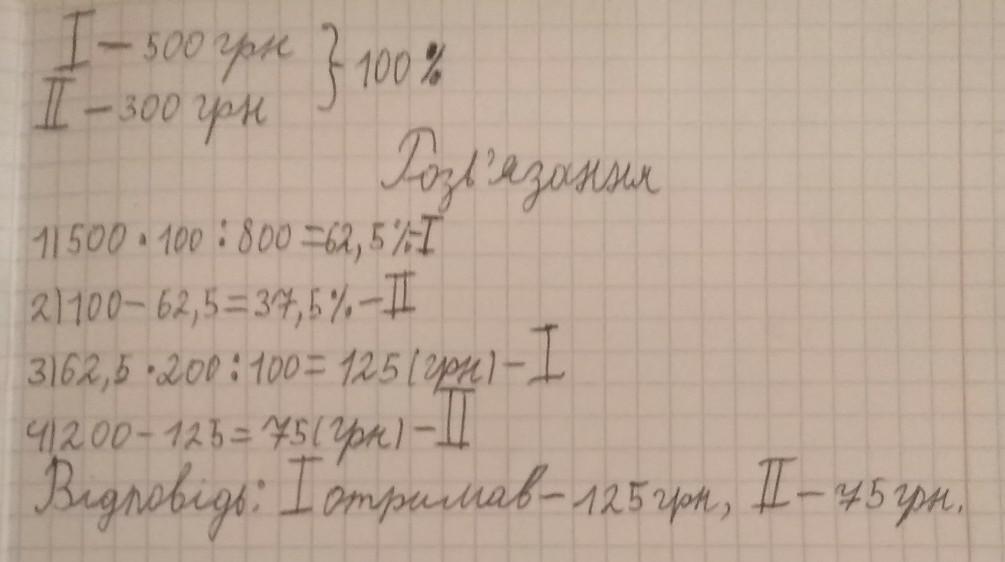 I – 500 грн } 100 %
II – 300 грн
Розв'язання
1) 500 · 100 : 800 = 62,5 % – I
2) 100 – 62,5 = 37,5 % – II
3) 62,5 · 200 : 100 = 125 (грн) – I
4) 200 – 125 = 75 (грн) – II
Відповідь: I отримав – 125 грн, II – 75 грн.